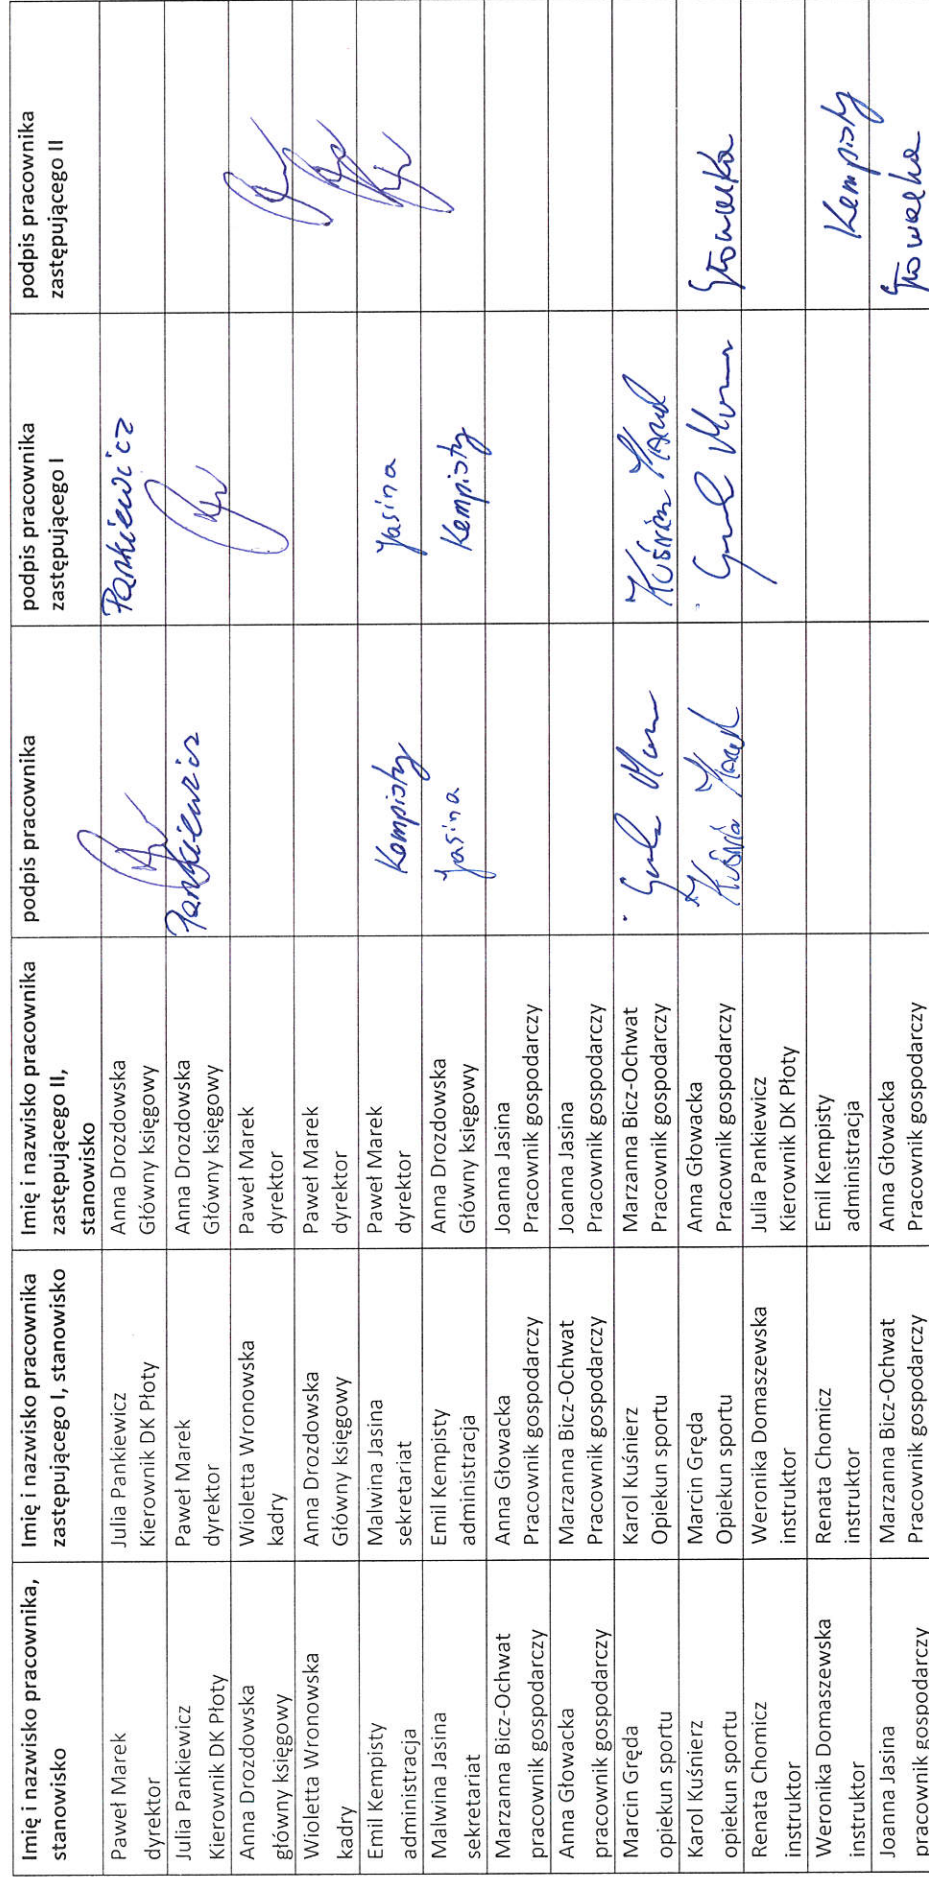 Imię i nazwisko pracownika,
stanowisko
Imię i nazwisko pracownika
zastępującego I, stanowisko
Imię i nazwisko pracownika
zastępującego II,
stanowisko
podpis pracownika
podpis pracownika
zastępującego I
podpis pracownika
zastępującego II
Paweł Marek
dyrektor
Julia Pankiewicz
Kierownik DK Płoty
Anna Drozdowska
Główny księgowy
Pankiewicz
Julia Pankiewicz
Kierownik DK Płoty
Paweł Marek
dyrektor
Anna Drozdowska
Główny księgowy
Pankiewicz
Anna Drozdowska
główny księgowy
Wioletta Wronowska
kadry
Paweł Marek
dyrektor
Wioletta Wronowska
kadry
Anna Drozdowska
Główny księgowy
Paweł Marek
dyrektor
Emil Kempisty
administracja
Malwina Jasina
sekretariat
Paweł Marek
dyrektor
Kempisty
Jasina
Malwina Jasina
sekretariat
Emil Kempisty
administracja
Anna Drozdowska
Główny księgowy
Jasina
Kempisty
Marzanna Bicz-Ochwat
pracownik gospodarczy
Anna Głowacka
Pracownik gospodarczy
Joanna Jasina
Pracownik gospodarczy
Anna Głowacka
pracownik gospodarczy
Marzanna Bicz-Ochwat
Pracownik gospodarczy
Joanna Jasina
Pracownik gospodarczy
Marcin Gręda
opiekun sportu
Karol Kuśnierz
Opiekun sportu
Marzanna Bicz-Ochwat
Pracownik gospodarczy
Karol Kuśnierz
opiekun sportu
Marcin Gręda
Opiekun sportu
Anna Głowacka
Pracownik gospodarczy
Głowacka
Renata Chomicz
instruktor
Weronika Domaszewska
instruktor
Julia Pankiewicz
Kierownik DK Płoty
Weronika Domaszewska
instruktor
Renata Chomicz
instruktor
Emil Kempisty
administracja
Kempisty
Joanna Jasina
pracownik gospodarczy
Marzanna Bicz-Ochwat
Pracownik gospodarczy
Anna Głowacka
Pracownik gospodarczy
Głowacka